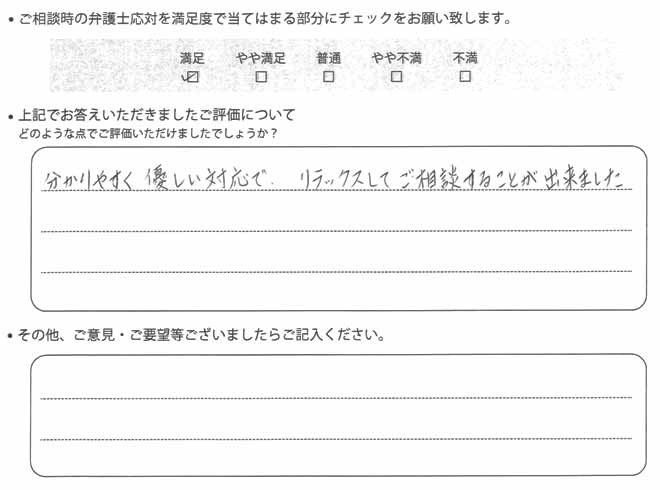 • ご相談時の弁護士応対を満足度で当てはまる部分にチェックをお願い致します。
満足 やや満足 普通 やや不満 不満
☑ ☐ ☐ ☐ ☐
• 上記でお答えいただきましたご評価について
どのような点でご評価いただけましたでしょうか？
分かりやすく優しい対応で、リラックスしてご相談することが出来ました
• その他、ご意見・ご要望等ございましたらご記入ください。